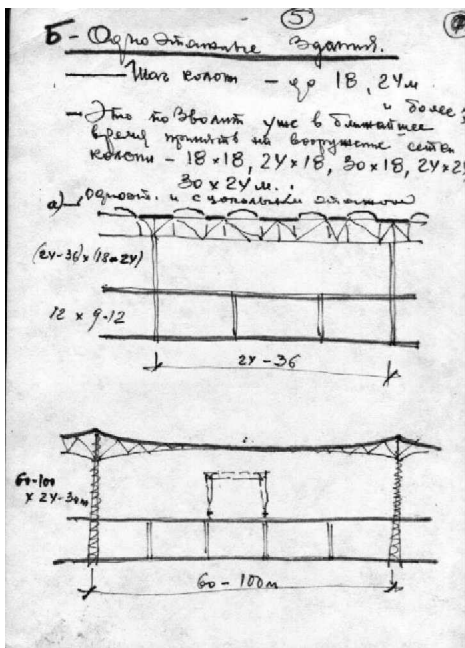 5
Б - Одноэтажные здания.
— Шаг колонн - до 18, 24м
и более
— Это позволит уже в ближайшее
время принять на вооружение сетки
колонн - 18×18, 24×18, 30×18, 24×24
30×24м.
а) — одноэт. и с цокольным этажом
(24-36)×(18-24)
12 × 9-12
24-36
60-100
× 24-36м
60-100м